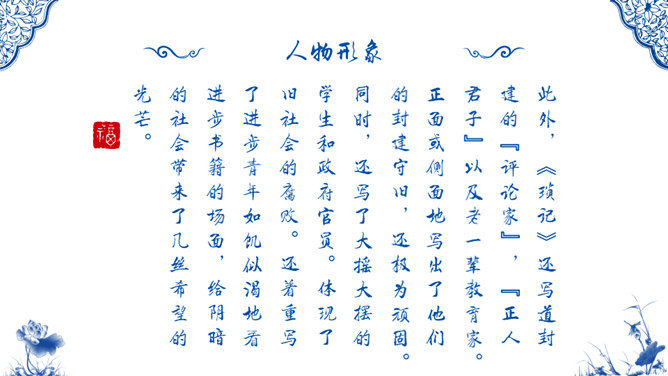 人物形象
此外，《琐记》还写道封
建的『评论家』，『正人
君子』以及老一辈教育家。
正面或侧面地写出了他们
的封建守旧，还极为顽固。
同时，还写了大摇大摆的
学生和政府官员。体现了
旧社会的腐败。还着重写
了进步青年如饥似渴地看
进步书籍的场面，给阴暗
的社会带来了几丝希望的
光芒。
福